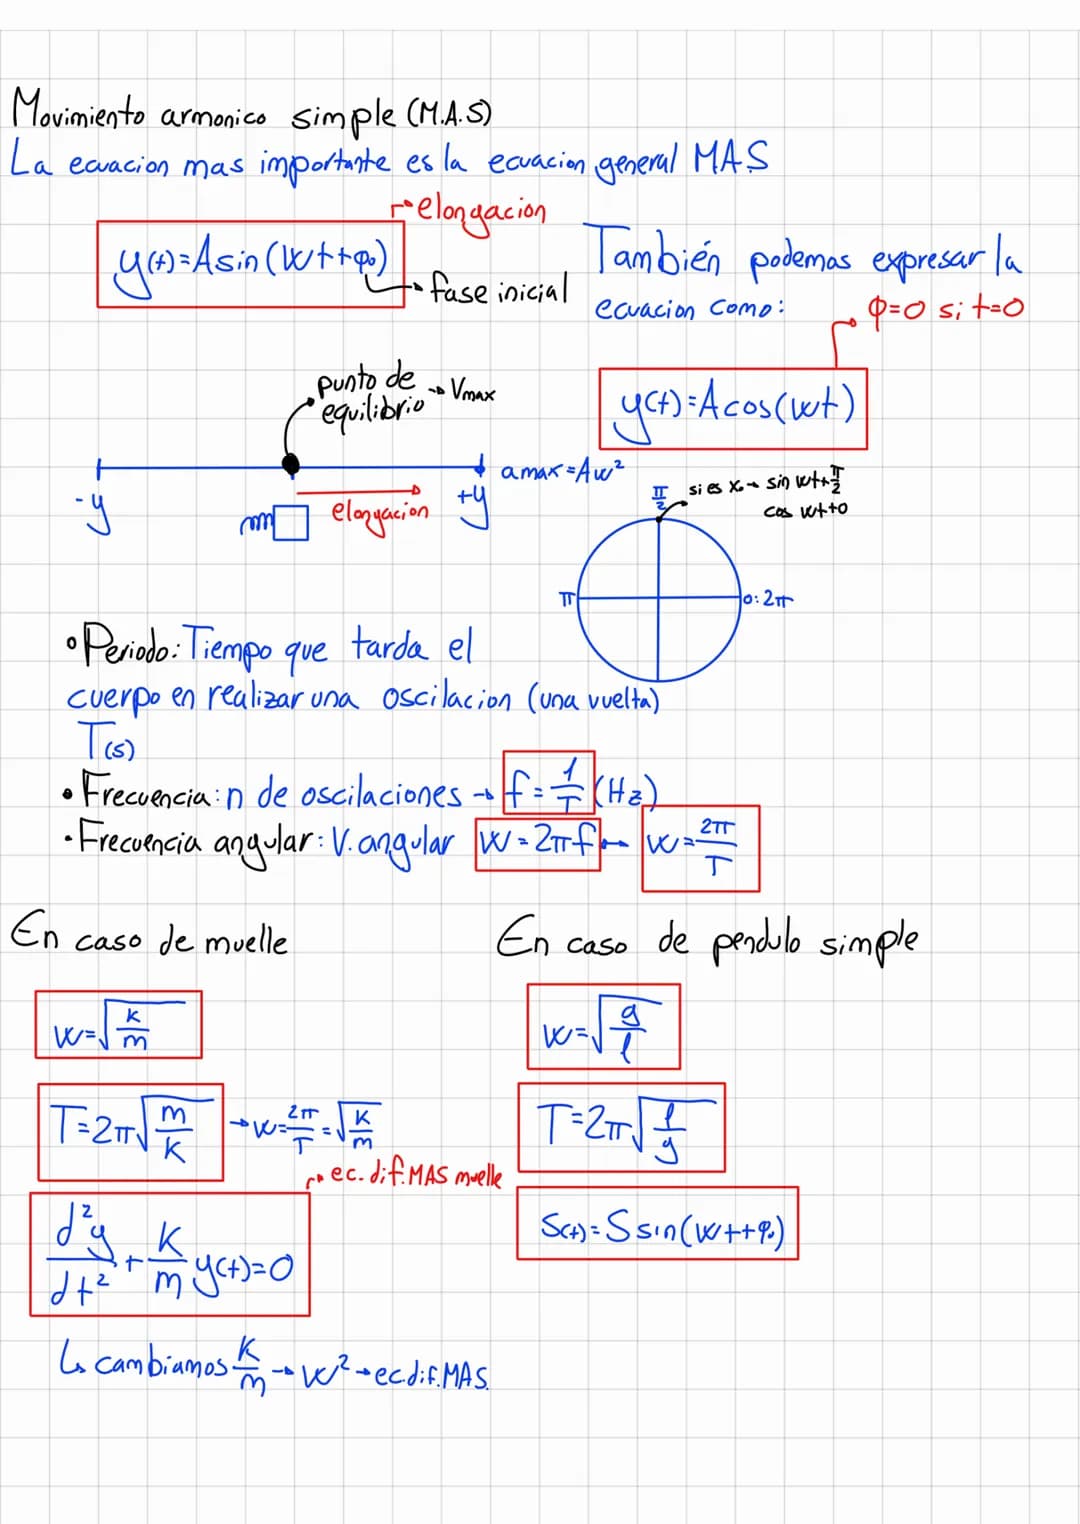 Movimiento armonico simple (M.A.S)
La ecuacion mas importante es la ecuacion general MAS
elongacion
y(t)=Asin(wt+φ₀)
fase inicial
También podemas expresar la
ecuacion como:
φ=0 si t=0
y(t)=Acos(wt)
punto de equilibrio → Vmax
amax=Aw²
-y
elongacion
+y
m
π/2
si es x₀→ sin wt+π/2
cos wt+0
π
0:2π
•Periodo: Tiempo que tarda el
cuerpo en realizar una oscilacion (una vuelta)
T(s)
•Frecuencia: n de oscilaciones → f=1/T (Hz)
•Frecuencia angular: V. angular w=2πf → w=2π/T
En caso de muelle
w=√(k/m)
T=2π√(m/k) → w=2π/T=√(k/m)
→ ec. dif. MAS muelle
d²y/dt²+k/m y(t)=0
↳ cambiamos k/m → w² → ec.dif.MAS.
En caso de pendulo simple
w=√(g/l)
T=2π√(l/g)
S(t)=S sin(wt+φ₀)